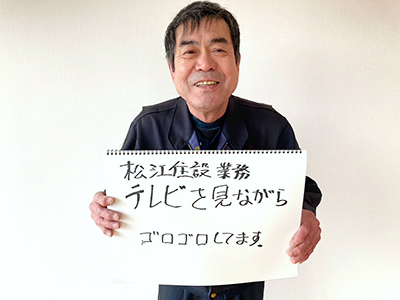 松江住設 業務
テレビを見ながら
ゴロゴロしてます